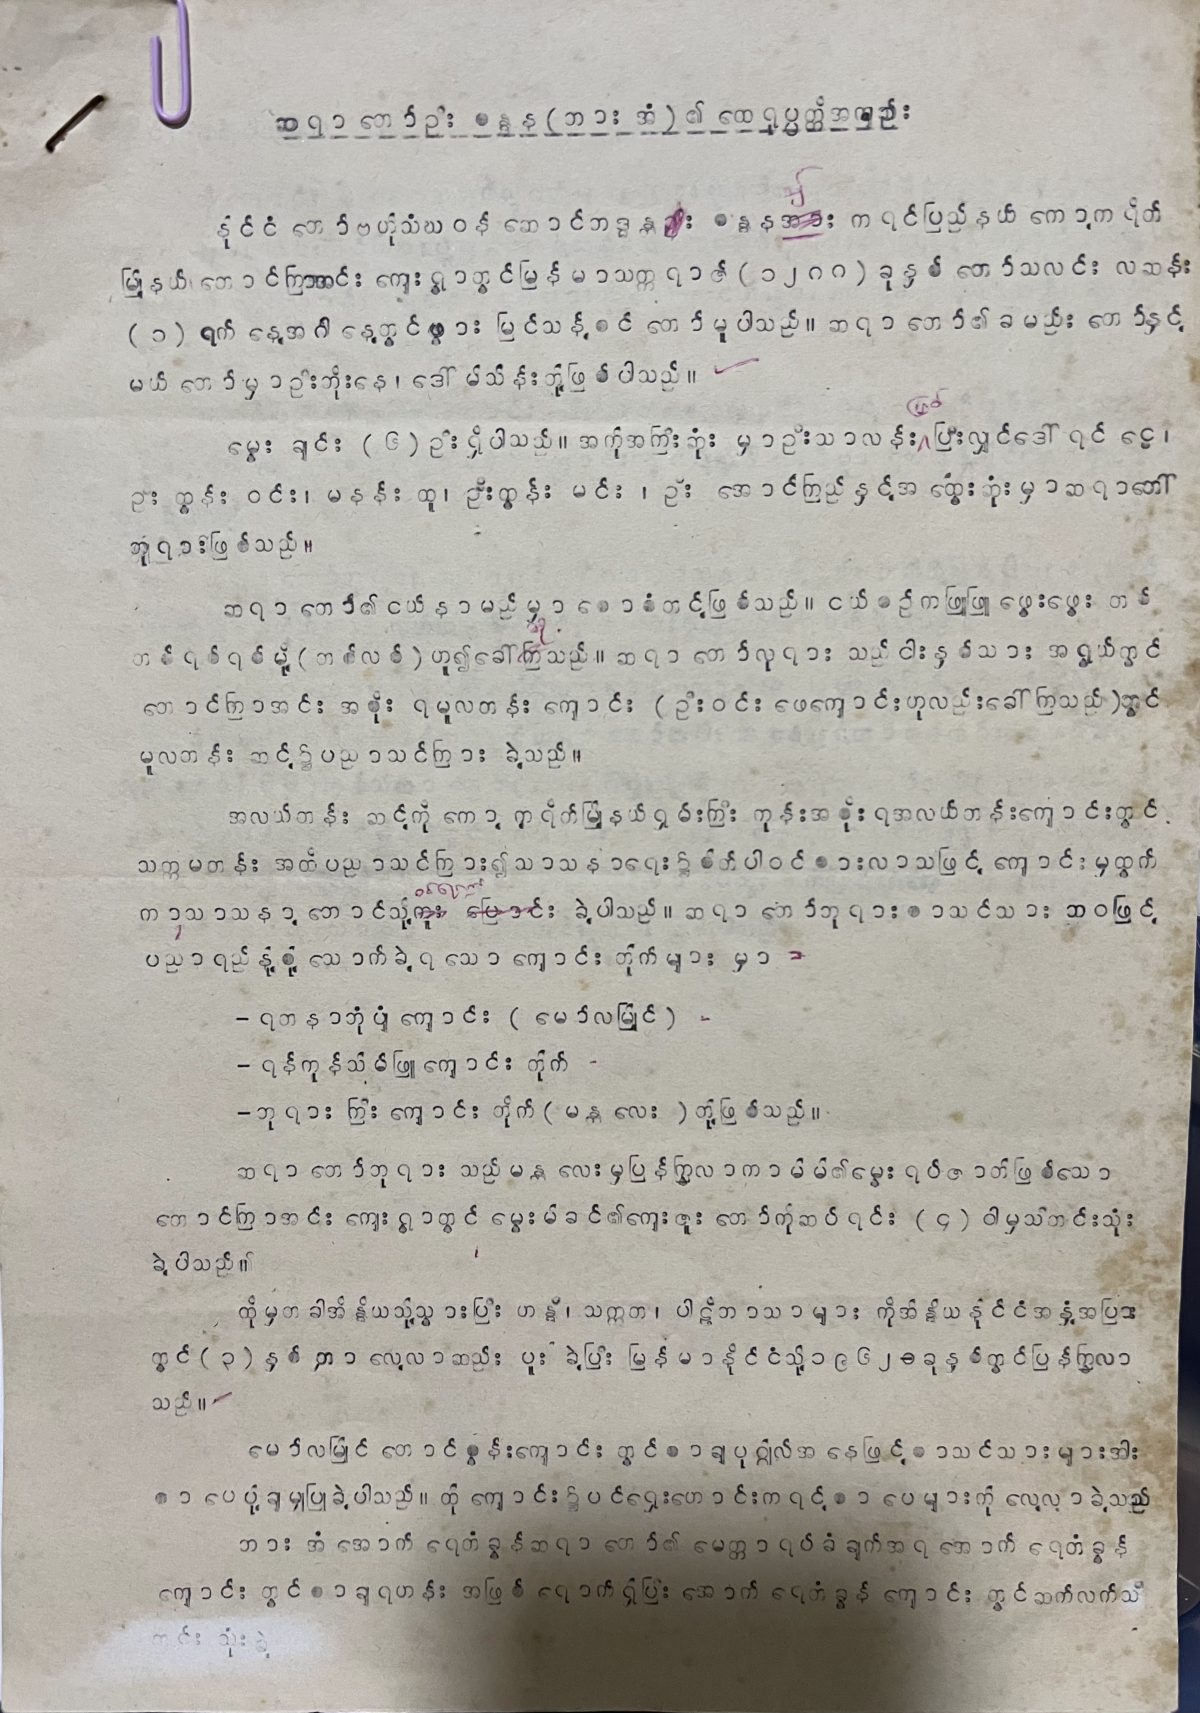 ဆရာတော်ဦး စန္ဒန(ဘား အံ)၏ ထေရုပ္ပတ္တိအကျဉ်း
နိုင်ငံ တော်ဗဟိုသံဃဝန် ဆောင်ဘဒ္ဒန္တ စန္ဒန ကရင်ပြည်နယ် ကော့ကရိတ်
မြို့နယ်၊တောင်ကြာအင်း ကျေးရွာတွင်မြန်မာသက္ကရာဇ်(၁၂၈၈)ခုနှစ် တော်သလင်း လဆန်း
(၁) ရက် နေ့အင်္ဂါ နေ့တွင်ဖွား မြင်သန့်စင် တော်မူပါသည်။ ဆရာ တော်၏ခမည်း တော်နှင့်
မယ် တော်မှာဦးဘိုးနေ၊ ဒေါ်မိသိန်းတို့ဖြစ်ပါသည်။
မွေး ချင်း (၆)ဦးရှိပါသည်။ အကိုအကြီးဆုံး မှာဦးသာလန်းဖြစ်ပြီးလျှင်ဒေါ် ရင် ငွေ၊
ဦး ထွန်း ဝင်း၊ မနန်း ထူ၊ ဦးထွန်း မင်း ၊ ဦး အောင်ကြည်နှင့်အ ထွေးဆုံးမှာဆရာတော်
ဘုရားဖြစ်သည်။
ဆရာ တော်၏ငယ်နာမည်မှာ စောစံတင့်ဖြစ်သည်။ ငယ်စဉ်ကဖြူဖြူ ဖွေးဖွေး တစ်
တစ်ရစ်ရစ်မို့(တစ်လစ်)ဟူ၍ခေါ်ကြသည်။ ဆရာ တော်လုရား သည်ငါးနှစ်သား အရွယ်တွင်
တောင်ကြာအင်း အစိုး ရမူလတန်း ကျောင်း (ဦးဝင်း ဖေကျောင်းဟုလည်းခေါ်ကြသည်)တွင်
မူလတန်း ဆင့်၌ပညာသင်ကြား ခဲ့သည်။
အလယ်တန်း ဆင့်ကို ကော့ကရိတ်မြို့နယ်ရှမ်းကြီး ကုန်းအစိုးရအလယ်တန်းကျောင်းတွင်
သတ္တမတန်း အထိပညာသင်ကြား၍သာသနာရေး၌စိတ်ပါဝင်စားလာသဖြင့် ကျောင်းမှထွက်
ကာသာသနာ့ ဘောင်သို့ဝင်ရောက် ခဲ့ပါသည်။ ဆရာ တော်ဘုရားစာသင်သား ဘဝဖြင့်
ပညာရည်နို့စို့ သောက်ခဲ့ရသော ကျောင်း တိုက်များ မှာ -
– ရတနာဘုံပျံ ကျောင်း ( မော်လမြိုင်)
– ရန်ကုန်သိမ်ဖြူကျောင်း တိုက်
–ဘုရား ကြီး ကျောင်း တိုက်(မန္တလေး )တို့ဖြစ်သည်။
ဆရာ တော်ဘုရား သည်မန္တလေးမှပြန်ကြွလာကာမိမိ၏မွေး ရပ်ဇာတိဖြစ်သော
တောင်ကြာအင်း ကျေးရွာတွင် မွေးမိခင်၏ကျေးဇူး တော်ကိုဆပ်ရင်း (၄)ဝါမှသီတင်းသုံး
ခဲ့ပါသည်။
ထိုမှတခါအိန္ဒိယသို့သွားပြီး ဟိန္ဒီ၊ သက္ကတ၊ ပါဠိဘာသာများ ကိုအိန္ဒိယနိုင်ငံအနှံ့အပြား
တွင်(၃)နှစ်တာ လေ့လာဆည်း ပူး ခဲ့ပြီး မြန်မာနိုင်ငံသို့၁၉၆၂ခုနှစ်တွင်ပြန်ကြွလာ
သည်။
မော်လမြိုင် တောင်စွန်းကျောင်း တွင်စာချပုဂ္ဂိုလ်အ နေဖြင့်စာသင်သားများအား
စာ ပေပို့ချမှုပြုခဲ့ပါသည်။ ထို ကျောင်း၌ပင်ရှေးဟောင်းကရင့်စာ ပေများကို လေ့လာခဲ့သည်
ဘား အံ အောက် ရေတံခွန်ဆရာ တော်၏ မေတ္တာရပ်ခံ ချက်အရ အောက် ရေတံခွန်
ကျောင်း တွင်စာချရဟန်း အဖြစ် ရောက်ရှိပြီး အောက် ရေတံခွန် ကျောင်း တွင်ဆက်လက်သီ
တင်း သုံးခဲ့